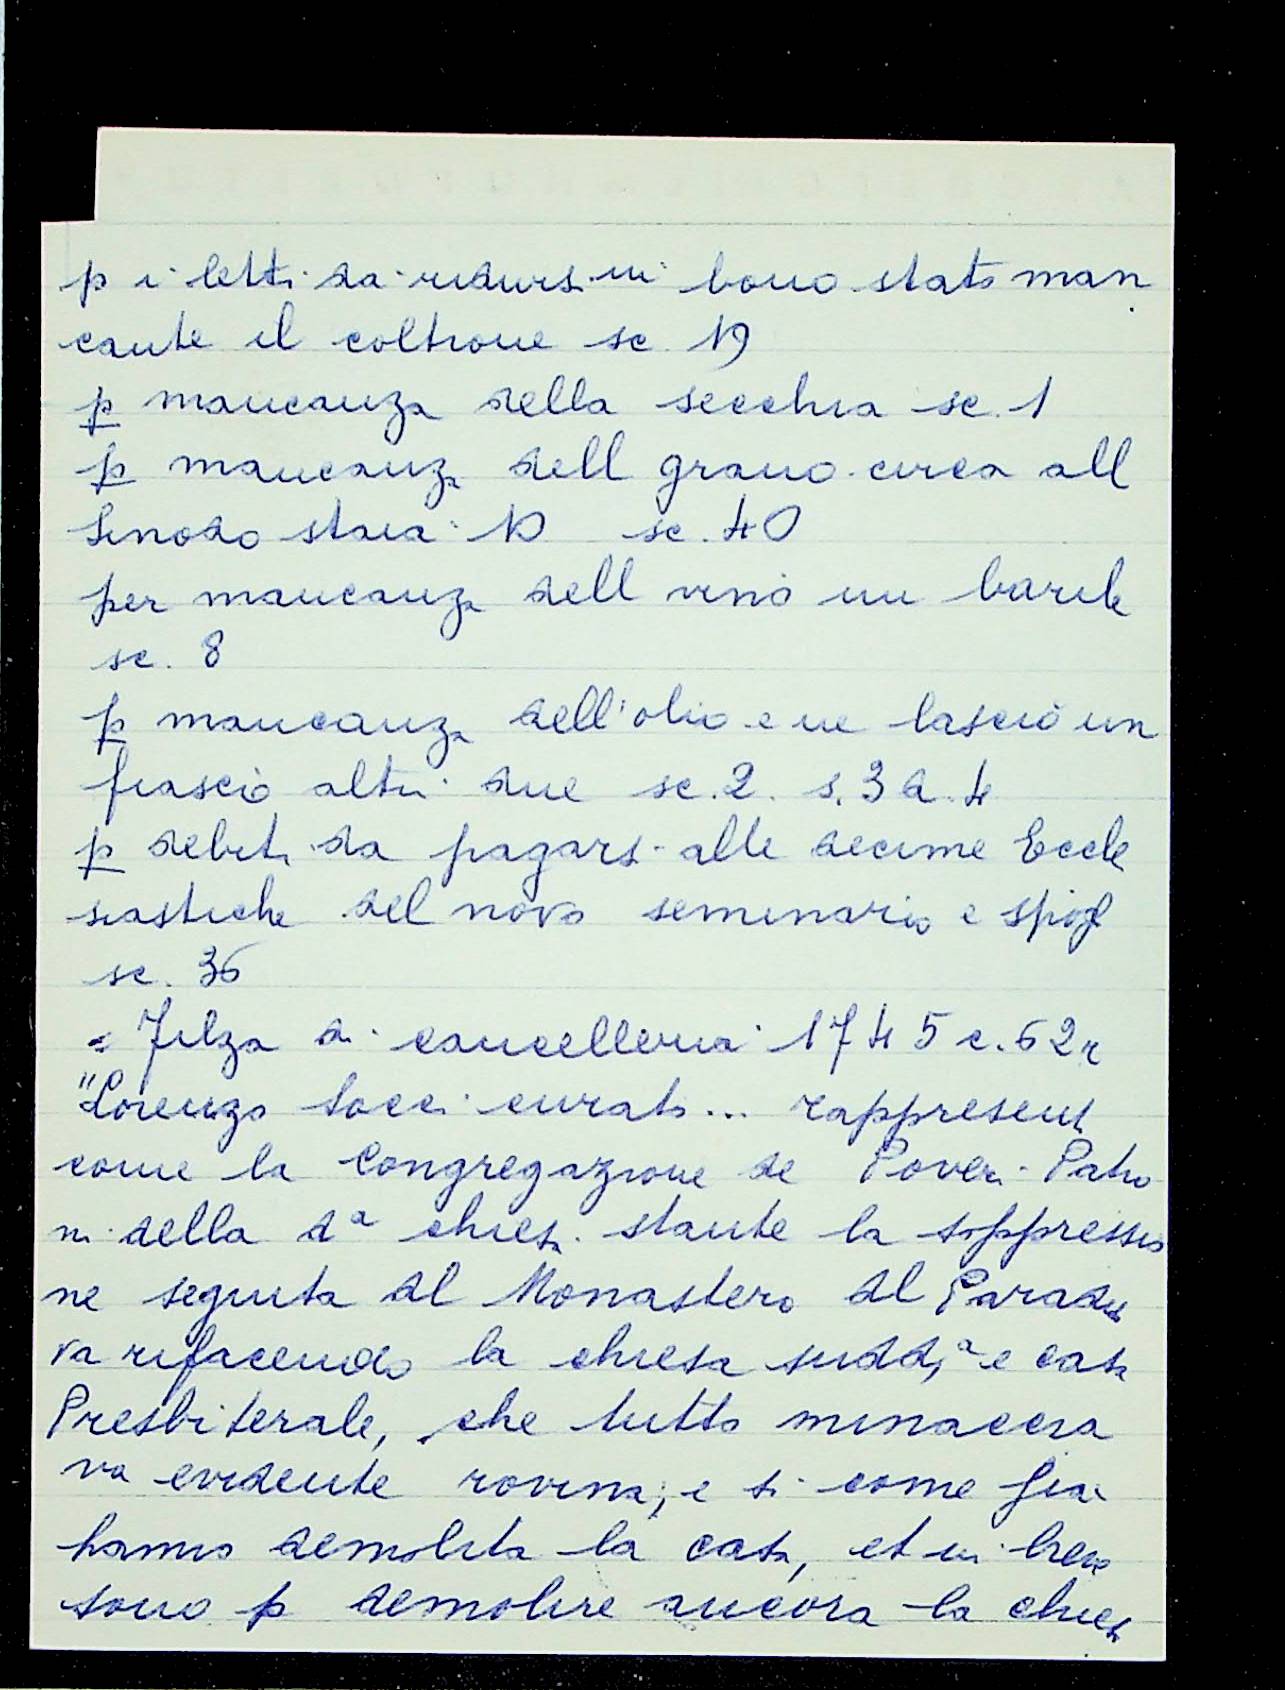 p i letti da ridursi in bono stato man
cante il coltrone sc. 19
p mancanza della secchia sc. 1
p mancanza dell grano circa all
Sinodo staia 10 sc. 40
per mancanza dell vino un barile
sc. 8
p mancanza dell'olio e ne lasciò un
fiascio altri due sc. 2. s. 3 d. 4
p debiti da pagarsi alle decime Eccle
siastiche del novo seminario e spog
sc. 36
= Filza di cancelleria 1745 c. 62r
"Lorenzo Socci curato... rappresent
come la Congregazione de Poveri Patro
ni della dª chiesa stante la soppressio
ne seguita del Monastero del Paradis
va rifacendo la chiesa sudd,ª e casa
Presbiterale, che tutto minaccia
va evidente rovina, e si come già
hanno demolita la casa, et in breve
sono p demolire ancora la chiesa